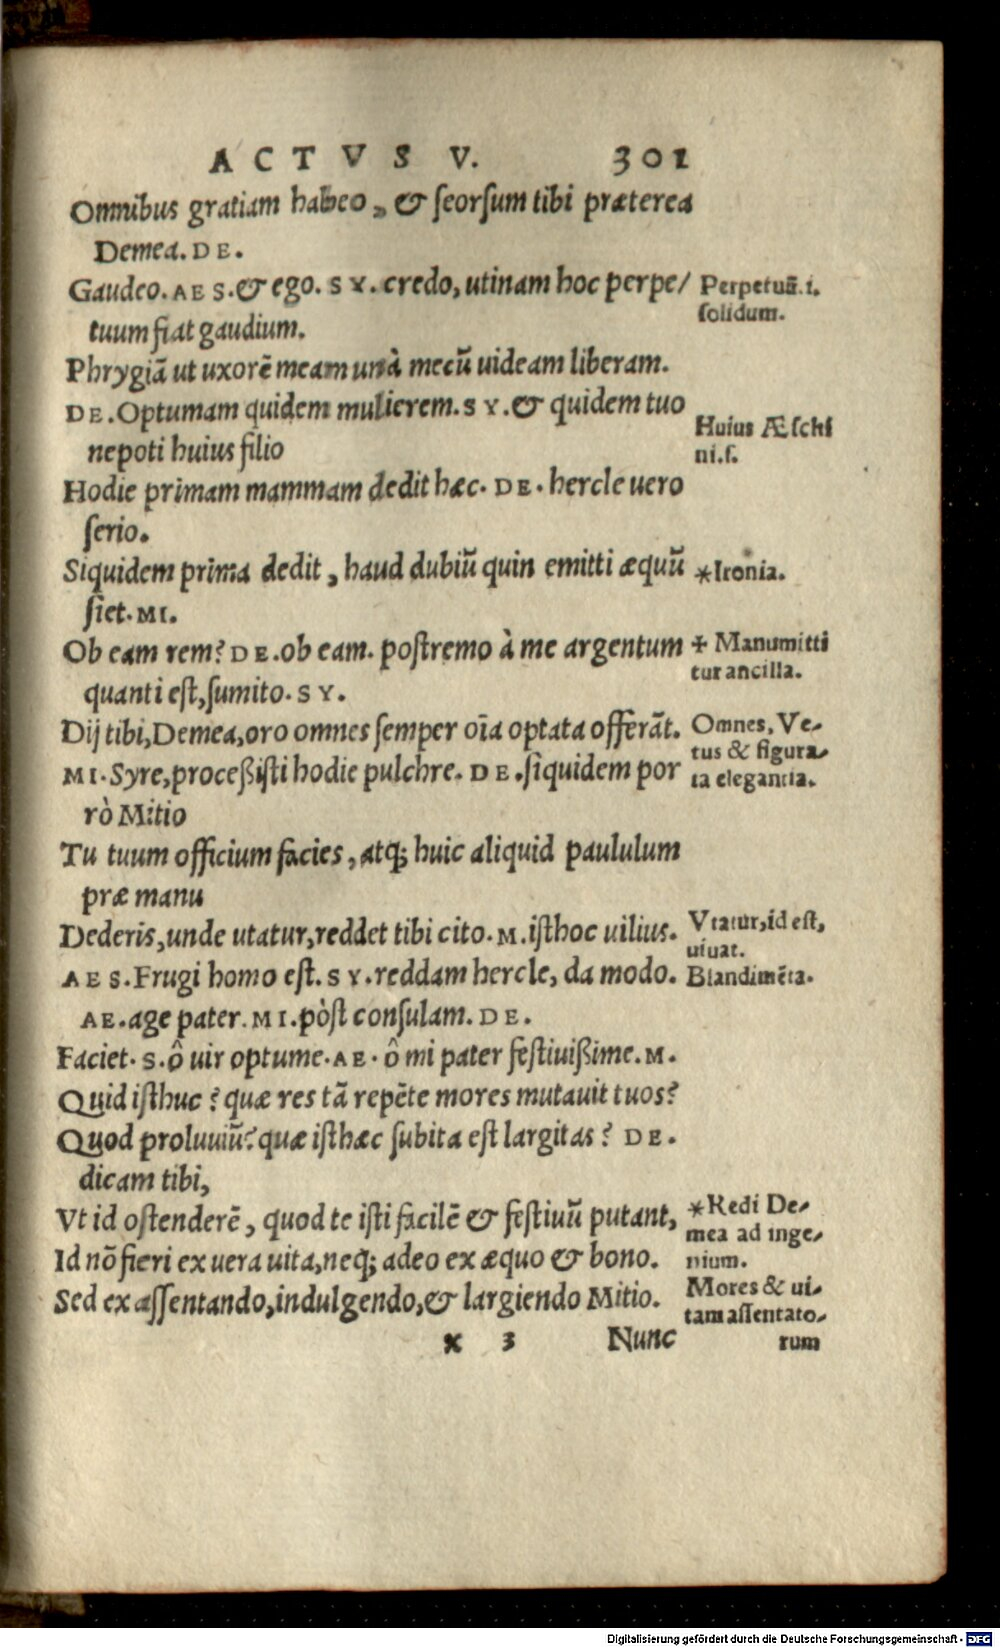 ACTVS V. 301
Omnibus gratiam habeo, & seorsum tibi præterea
Demea. DE.
Gaudeo. AES. & ego. SY. credo, utinam hoc perpe/
tuum fiat gaudium.
Perpetuū.i.
solidum.
Phrygiā ut uxorē meam unà mecū uideam liberam.
DE. Optumam quidem mulierem. SY. & quidem tuo
nepoti huius filio
Huius Æschi
ni.s.
Hodie primam mammam dedit hæc. DE. hercle uero
serio.
Siquidem prima dedit, haud dubiū quin emitti æquū
siet. MI.
*Ironia.
Ob eam rem? DE. ob eam. postremo à me argentum
quanti est, sumito. SY.
+ Manumitti
tur ancilla.
Dij tibi, Demea, oro omnes semper oīa optata offerāt.
MI. Syre, processisti hodie pulchre. DE. siquidem por
rò Mitio
Omnes, Ve-
tus & figura-
ta elegantia.
Tu tuum officium facies, atq; huic aliquid paululum
præ manu
Dederis, unde utatur, reddet tibi cito. M. isthoc uilius.
AES. Frugi homo est. SY. reddam hercle, da modo.
AE. age pater. MI. pòst consulam. DE.
Vtatur, id est,
uiuat.
Blandimēta.
Faciet. S. ô uir optume. AE. ô mi pater festiuissime. M.
Quid isthuc? quæ res tā repēte mores mutauit tuos?
Quod proluuiū? quæ isthæc subita est largitas? DE.
dicam tibi,
Vt id ostenderē, quod te isti facilē & festiuū putant,
Id nō fieri ex uera uita, neq; adeo ex æquo & bono.
Sed ex assentando, indulgendo, & largiendo Mitio.
*Redi De-
mea ad inge-
nium.
Mores & ui-
tam assentato-
x 3 Nunc rum
Digitalisierung gefördert durch die Deutsche Forschungsgemeinschaft - DFG